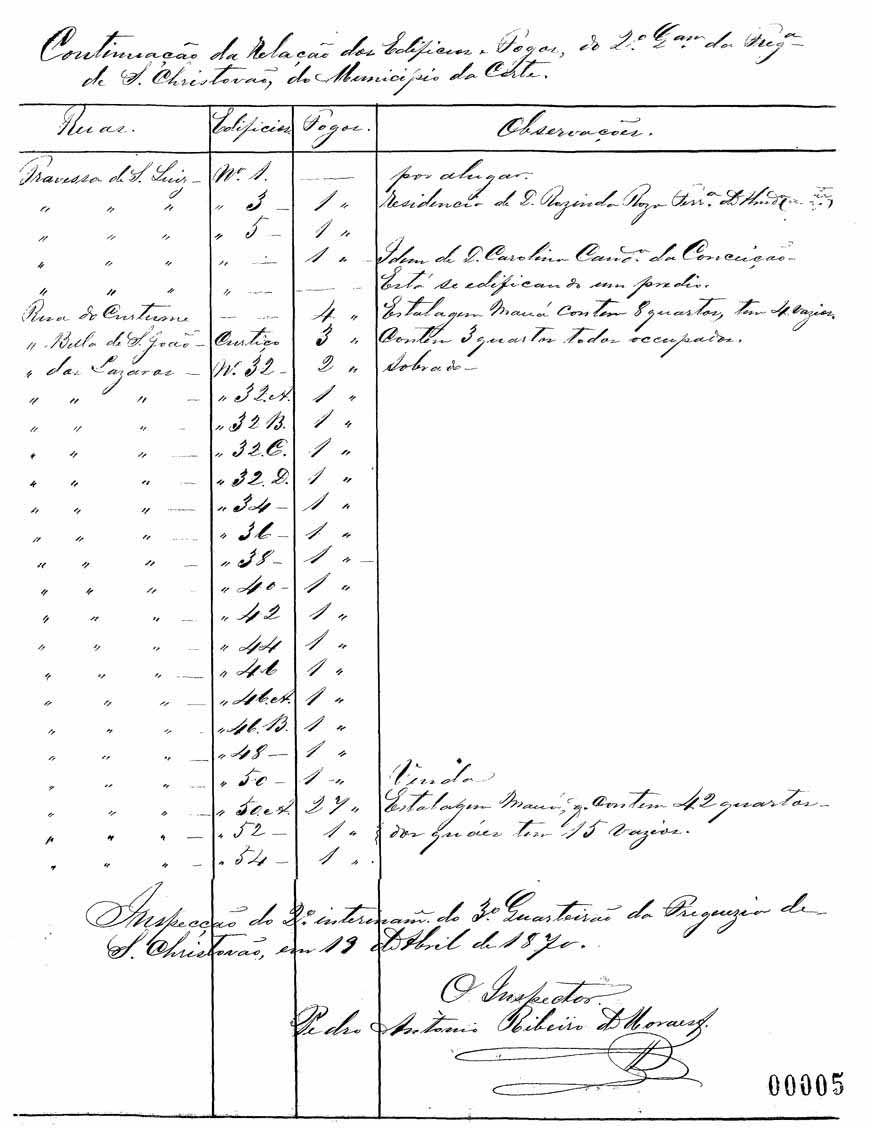 Continuação da Relação dos Edificios e Fogos, do 2.º Q.am da Freg.a
de S. Christovão, do Municipio da Côrte.
Ruas. Edificios Fogos. Observações.
Travessa de S. Luiz — Nº 1. —— por alugar.
" " " " 3 — 1 " Residencia de D. Rozinda Roza Ferr.a
" " " " 5 — 1 "
" " " " — 1 " — Idem de D. Carolina Canc.a da Conceição —
" " " " —— Está se edificando um predio.
Rua do Curtume — — 4 " Estalagem Mauá contem 8 quartos, tem 4 vazios.
" Bella de S. João — Curtiço 3 " Contem 3 quartos todos occupados.
" dos Lazaros — Nº 32 — 2 " Sobrado —
" " " — " 32.A. 1 "
" " " — " 32 B. 1 "
" " " — " 32.C. 1 "
" " " — " 32.D. 1 "
" " " — " 34 — 1 "
" " " — " 36 — 1 "
" " " — " 38 — 1 " —
" " " — " 40 — 1 "
" " " — " 42 1 "
" " " — " 44 1 "
" " " — " 46 1 "
" " " — " 46.A. 1 "
" " " — " 46.B. 1 "
" " " — " 48 — 1 "
" " " — " 50 — 1 " Venda
" " " — " 50.A. 27 " Estalagem Mauá, q. contem 42 quartos —
" " " — " 52 — 1 " dos quáes tem 15 vazios.
" " " — " 54 — 1 "
Inspecção do 2.º interinam. do 3.º Quarteirão da Freguezia de
S. Christovão, em 19 d'Abril de 1870.
O Inspector.
Pedro Antonio Ribeiro d'Moraes
00005